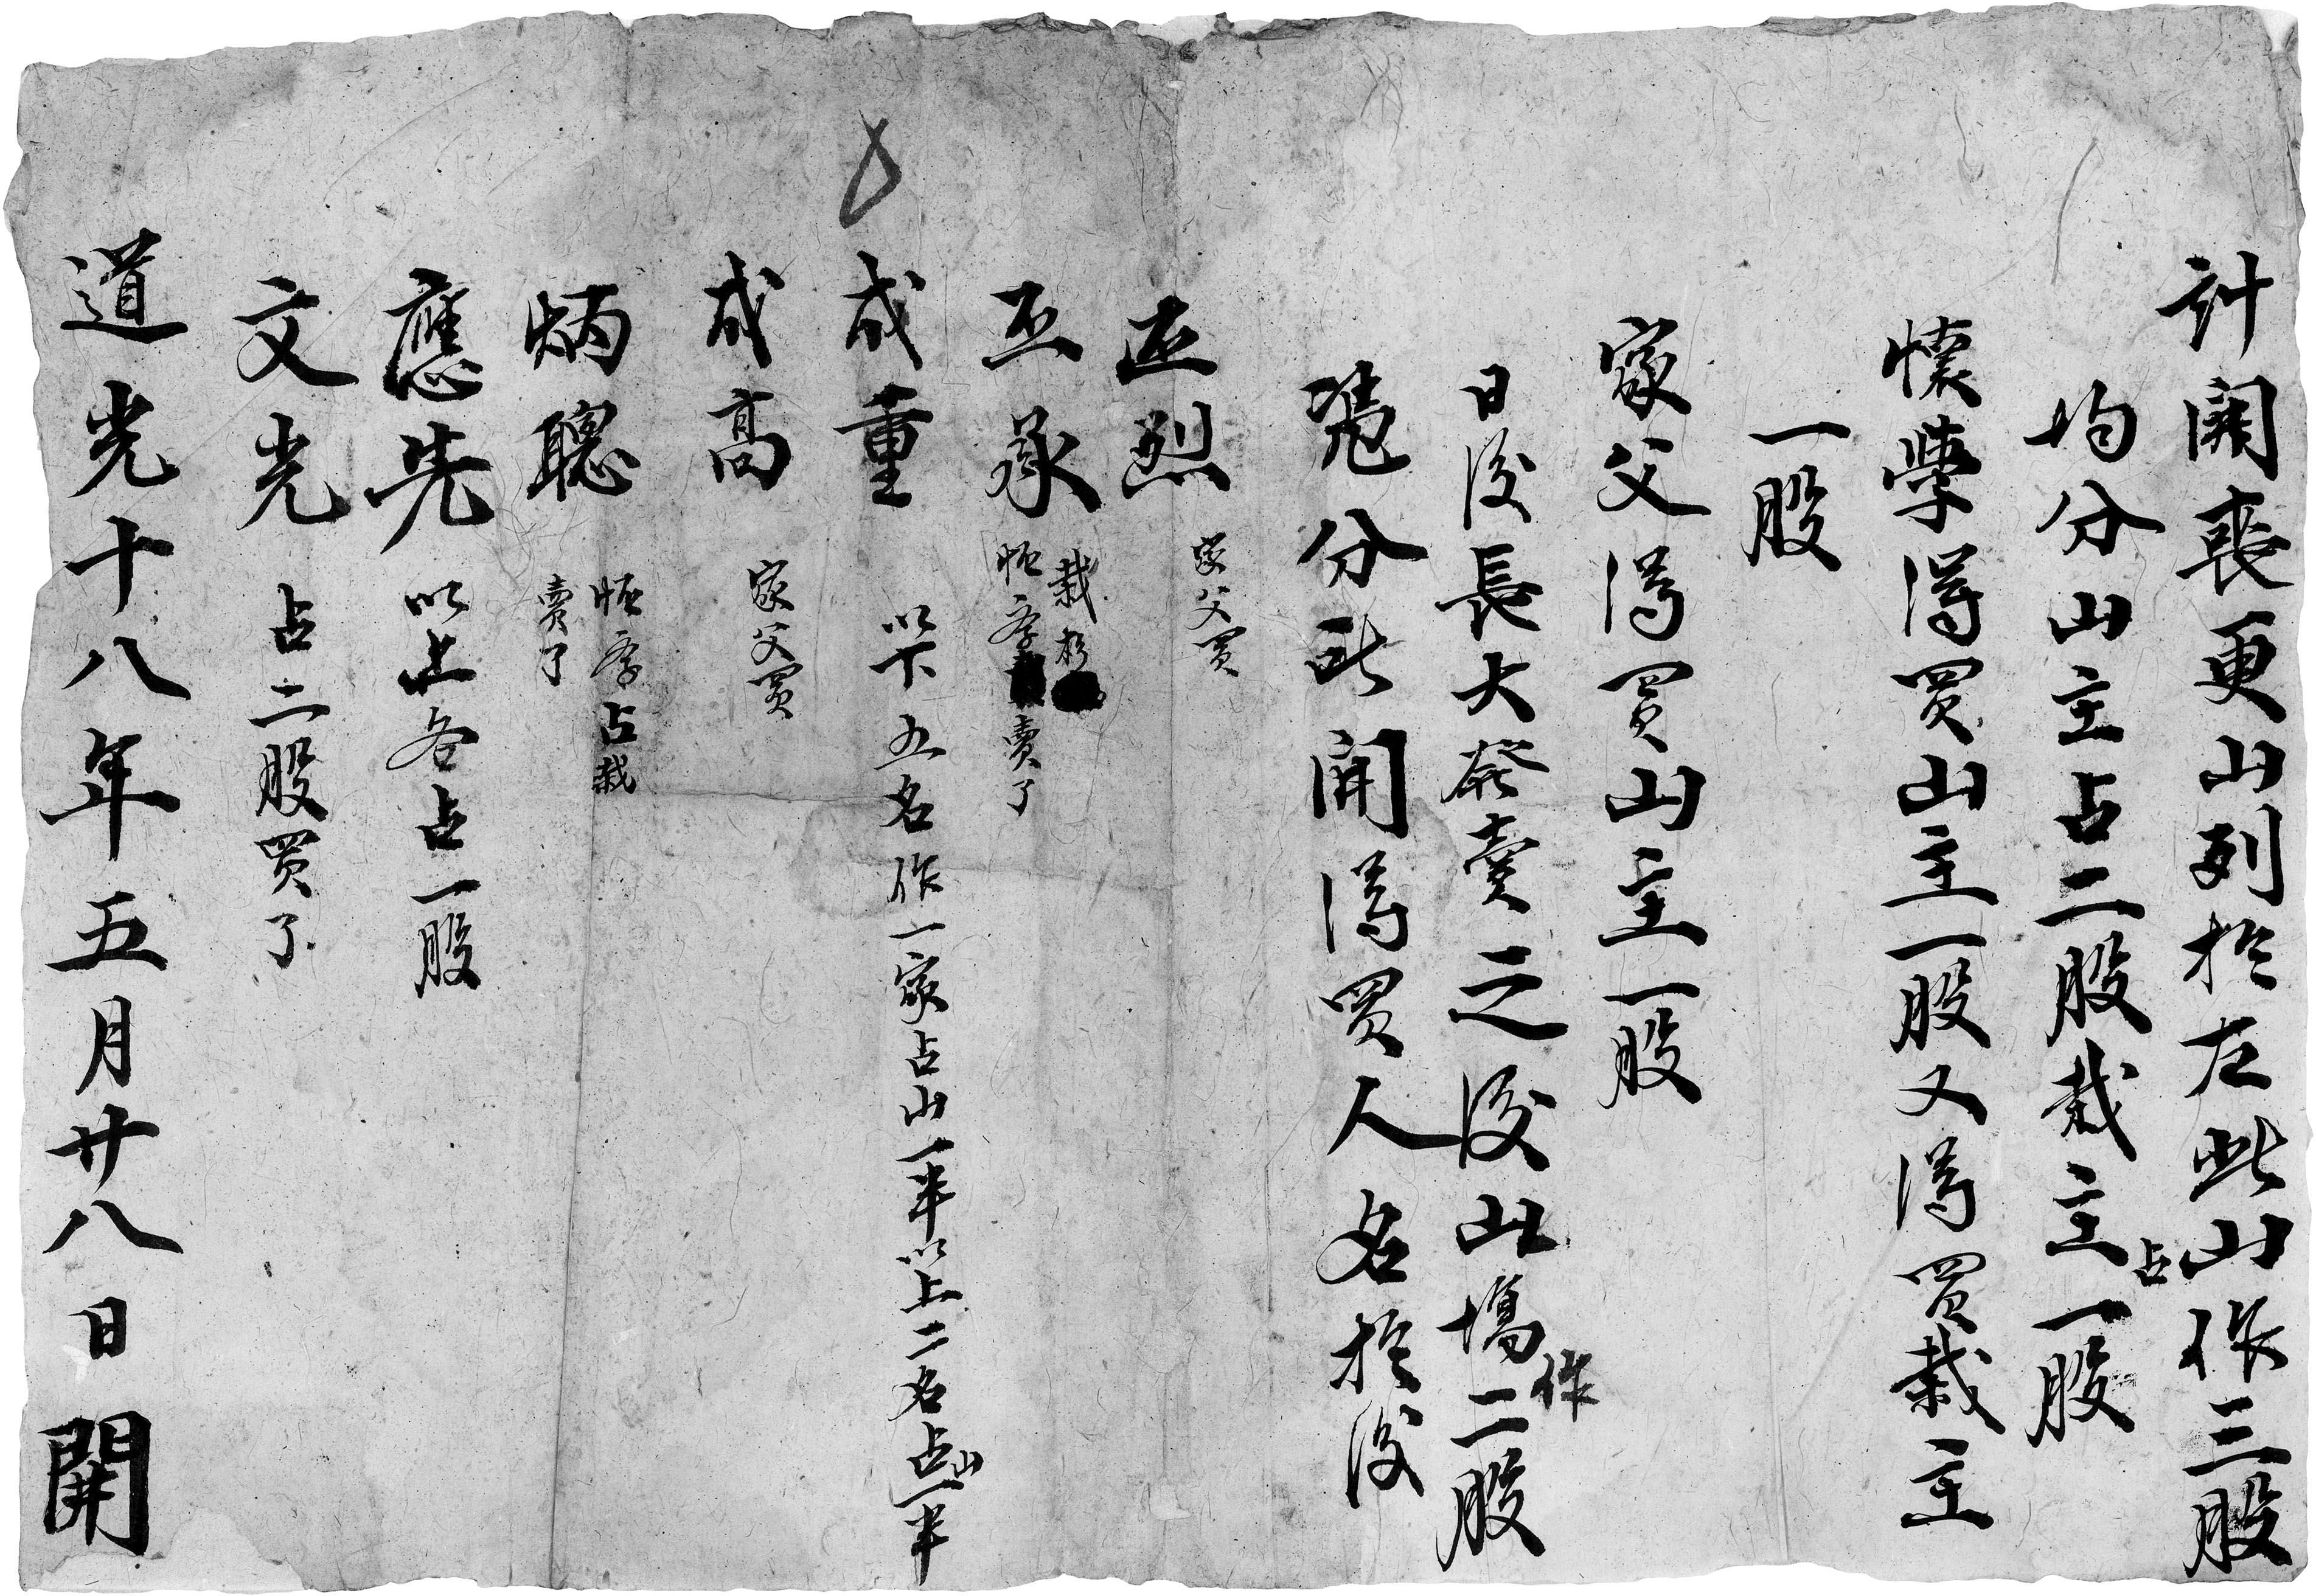 計開喪更山列於左此山作三股
均分山主占二股栽主占一股
懷學得買山主一股又得買栽主
一股
家父得買山主一股
日後長大發賣之後此塲作二股
憑分所開得買人名於後
正烈 家父買
正承 栽杉 賣了
成重 以下五名作一家占山一半以上二名占山一半
成高 家父買
炳聰 占栽 賣了
應先 以上各占一股
文光 占二股買了
道光十八年五月廿八日開